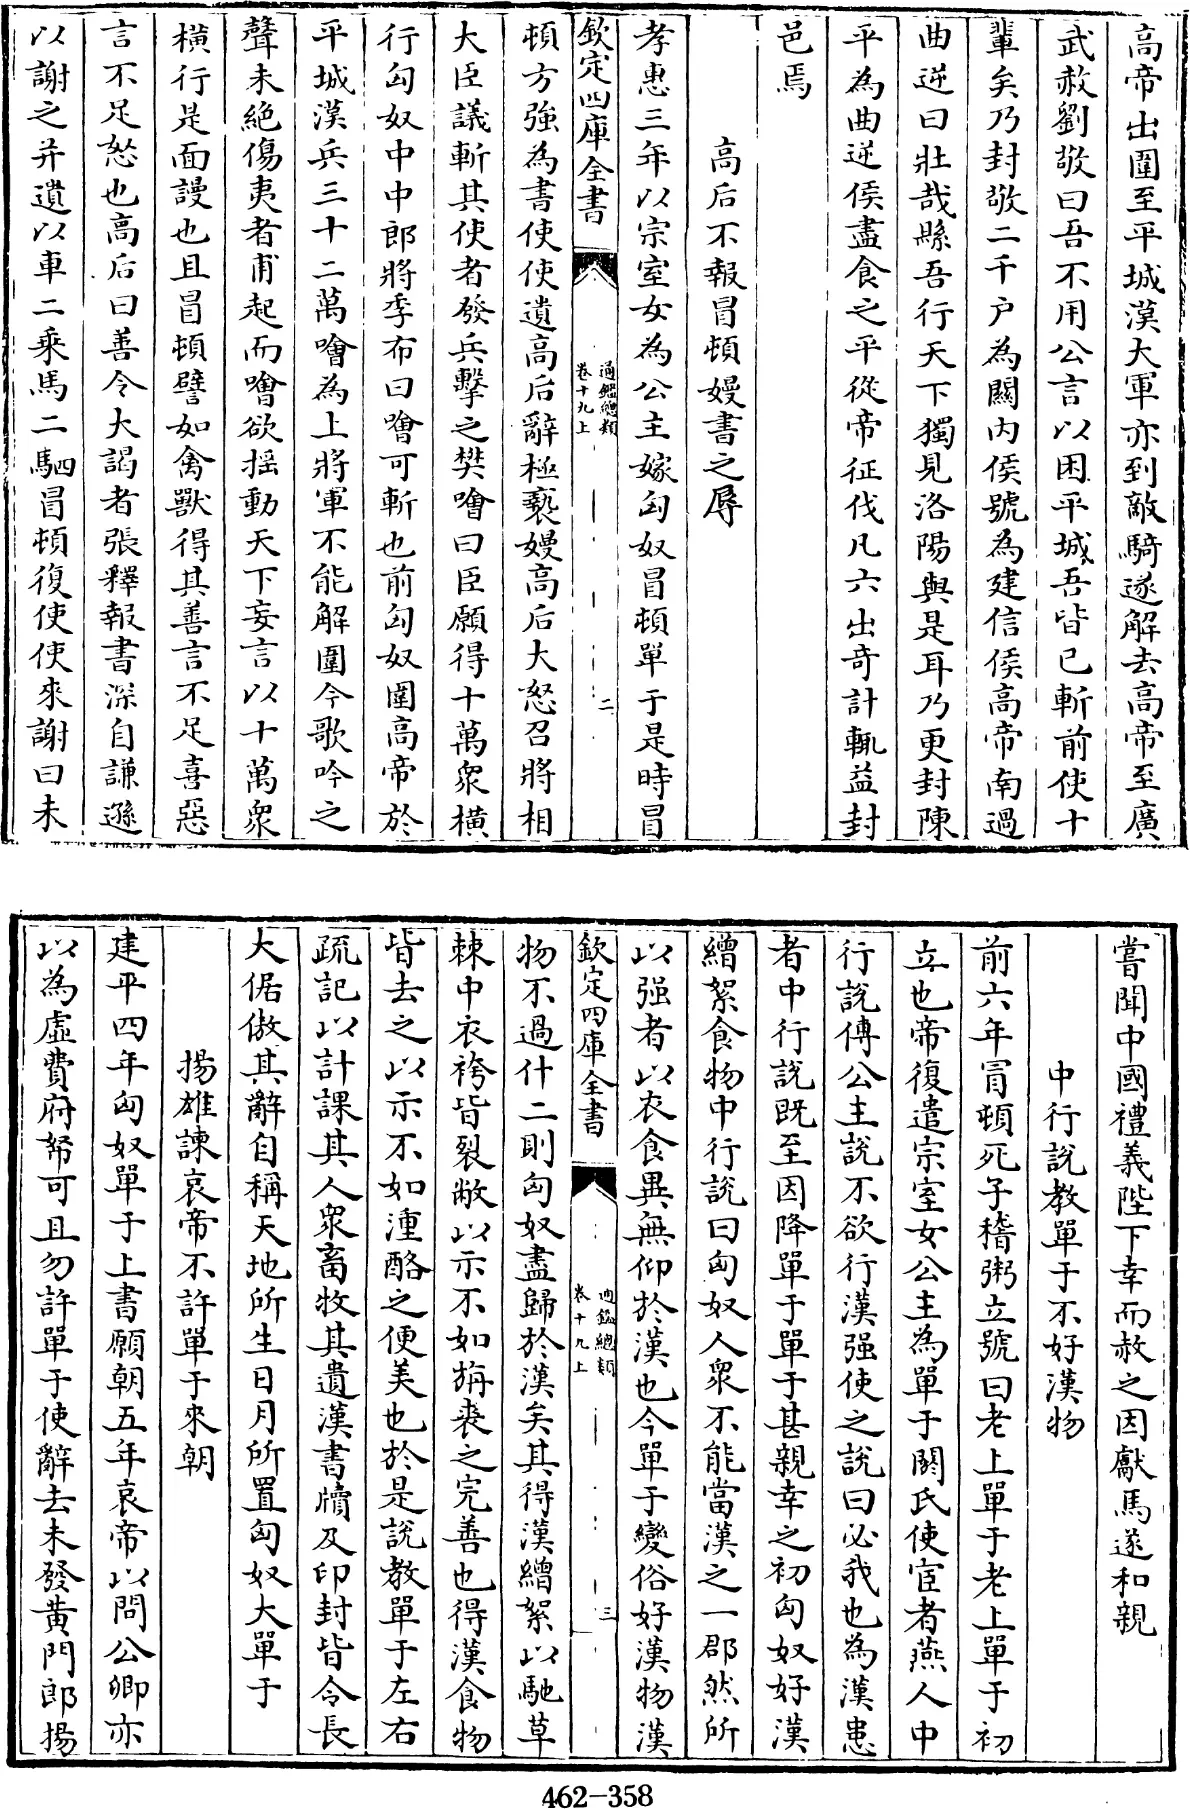 高帝出圍至平城漢大軍亦到敵騎遂解去高帝至廣
武赦劉敬曰吾不用公言以困平城吾皆已斬前使十
輩矣乃封敬二千户為關内侯號為建信侯高帝南過
曲逆曰壯哉縣吾行天下獨見洛陽與是耳乃更封陳
平為曲逆侯盡食之平從帝征伐凡六出奇計輒益封
邑焉
高后不報冒頓嫚書之辱
孝惠三年以宗室女為公主嫁匈奴冒頓單于是時冒
欽定四庫全書
通鑑總類
卷十九上
二
頓方強為書使使遺高后辭極䙝嫚高后大怒召將相
大臣議斬其使者發兵擊之樊噲曰臣願得十萬衆横
行匈奴中中郎將季布曰噲可斬也前匈奴圍高帝於
平城漢兵三十二萬噲為上將軍不能解圍今歌吟之
聲未絶傷夷者甫起而噲欲揺動天下妄言以十萬衆
横行是面謾也且冒頓譬如禽獸得其善言不足喜惡
言不足怒也高后曰善令大謁者張釋報書深自謙遜
以謝之并遺以車二乘馬二駟冒頓復使使來謝曰未
嘗聞中國禮義陛下幸而赦之因獻馬遂和親
中行説教單于不好漢物
前六年冒頓死子稽粥立號曰老上單于老上單于初
立也帝復遣宗室女公主為單于閼氏使宦者燕人中
行説傅公主説不欲行漢强使之説曰必我也為漢患
者中行説既至因降單于單于甚親幸之初匈奴好漢
繒絮食物中行説曰匈奴人衆不能當漢之一郡然所
以强者以衣食異無仰於漢也今單于變俗好漢物漢
欽定四庫全書
通鑑總類
卷十九上
三
物不過什二則匈奴盡歸於漢矣其得漢繒絮以馳草
棘中衣袴皆裂敝以示不如旃裘之完善也得漢食物
皆去之以示不如湩酪之便美也於是説教單于左右
疏記以計課其人衆畜牧其遺漢書牘及印封皆令長
大倨傲其辭自稱天地所生日月所置匈奴大單于
揚雄諫哀帝不許單于來朝
建平四年匈奴單于上書願朝五年哀帝以問公卿亦
以為虚費府帑可且勿許單于使辭去未發黄門郎揚
462-358